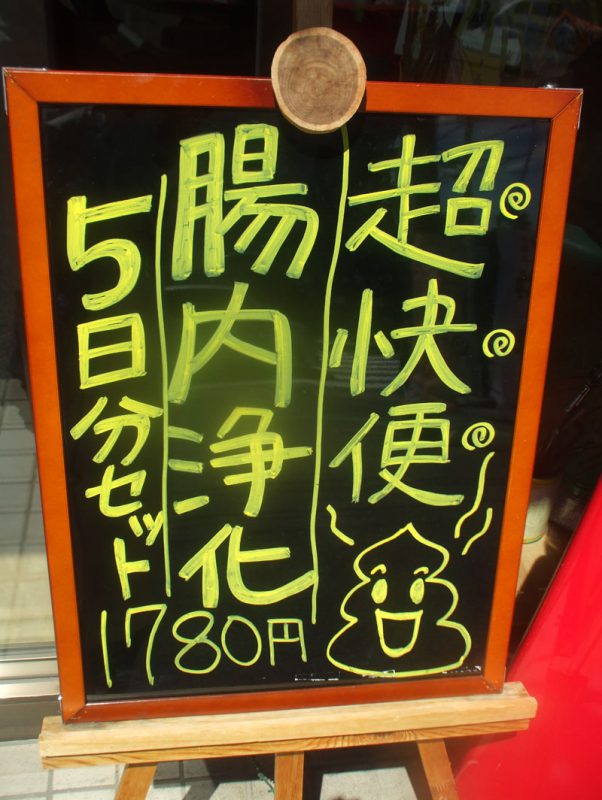 超快便
腸内浄化
5日分セット
1780円